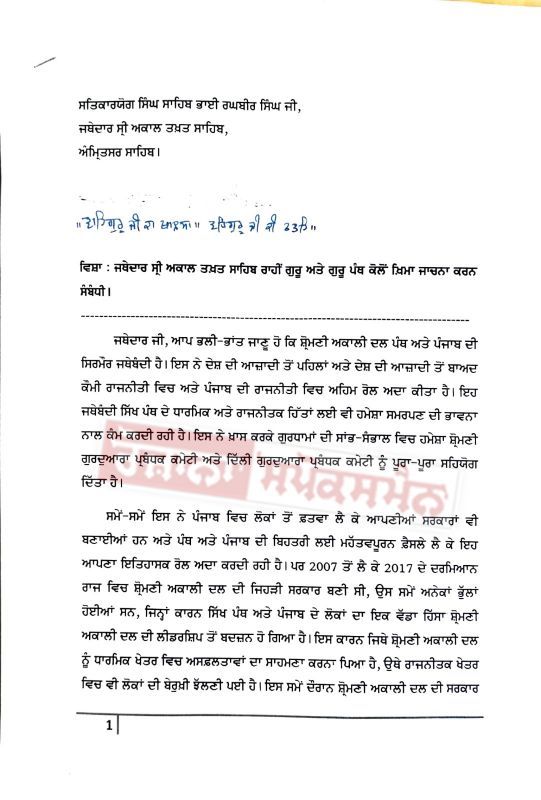 ਸਤਿਕਾਰਯੋਗ ਸਿੰਘ ਸਾਹਿਬ ਭਾਈ ਰਘਬੀਰ ਸਿੰਘ ਜੀ,
ਜਥੇਦਾਰ ਸ੍ਰੀ ਅਕਾਲ ਤਖ਼ਤ ਸਾਹਿਬ,
ਅੰਮ੍ਰਿਤਸਰ ਸਾਹਿਬ।
"ਵਾਹਿਗੁਰੂ ਜੀ ਕਾ ਖਾਲਸਾ॥ ਵਾਹਿਗੁਰੂ ਜੀ ਕੀ ਫਤਹਿ॥
ਵਿਸ਼ਾ : ਜਥੇਦਾਰ ਸ੍ਰੀ ਅਕਾਲ ਤਖ਼ਤ ਸਾਹਿਬ ਰਾਹੀਂ ਗੁਰੂ ਅਤੇ ਗੁਰੂ ਪੰਥ ਕੋਲੋਂ ਖ਼ਿਮਾ ਜਾਚਨਾ ਕਰਨ
ਸੰਬੰਧੀ।
ਜਥੇਦਾਰ ਜੀ, ਆਪ ਭਲੀ-ਭਾਂਤ ਜਾਣੂ ਹੋ ਕਿ ਸ਼੍ਰੋਮਣੀ ਅਕਾਲੀ ਦਲ ਪੰਥ ਅਤੇ ਪੰਜਾਬ ਦੀ
ਸਿਰਮੌਰ ਜਥੇਬੰਦੀ ਹੈ। ਇਸ ਨੇ ਦੇਸ਼ ਦੀ ਆਜ਼ਾਦੀ ਤੋਂ ਪਹਿਲਾਂ ਅਤੇ ਦੇਸ਼ ਦੀ ਆਜ਼ਾਦੀ ਤੋਂ ਬਾਅਦ
ਕੌਮੀ ਰਾਜਨੀਤੀ ਵਿਚ ਅਤੇ ਪੰਜਾਬ ਦੀ ਰਾਜਨੀਤੀ ਵਿਚ ਅਹਿਮ ਰੋਲ ਅਦਾ ਕੀਤਾ ਹੈ। ਇਹ
ਜਥੇਬੰਦੀ ਸਿੱਖ ਪੰਥ ਦੇ ਧਾਰਮਿਕ ਅਤੇ ਰਾਜਨੀਤਕ ਹਿੱਤਾਂ ਲਈ ਵੀ ਹਮੇਸ਼ਾ ਸਮਰਪਣ ਦੀ ਭਾਵਨਾ
ਨਾਲ ਕੰਮ ਕਰਦੀ ਰਹੀ ਹੈ। ਇਸ ਨੇ ਖ਼ਾਸ ਕਰਕੇ ਗੁਰਧਾਮਾਂ ਦੀ ਸਾਂਭ-ਸੰਭਾਲ ਵਿਚ ਹਮੇਸ਼ਾ ਸ਼੍ਰੋਮਣੀ
ਗੁਰਦੁਆਰਾ ਪ੍ਰਬੰਧਕ ਕਮੇਟੀ ਅਤੇ ਦਿੱਲੀ ਗੁਰਦੁਆਰਾ ਪ੍ਰਬੰਧਕ ਕਮੇਟੀ ਨੂੰ ਪੂਰਾ-ਪੂਰਾ ਸਹਿਯੋਗ
ਦਿੱਤਾ ਹੈ।
ਰੋਜ਼ਾਨਾ ਸਪੋਕਸਮੈਨ
ਸਮੇਂ-ਸਮੇਂ ਇਸ ਨੇ ਪੰਜਾਬ ਵਿਚ ਲੋਕਾਂ ਤੋਂ ਫ਼ਤਵਾ ਲੈ ਕੇ ਆਪਣੀਆਂ ਸਰਕਾਰਾਂ ਵੀ
ਬਣਾਈਆਂ ਹਨ ਅਤੇ ਪੰਥ ਅਤੇ ਪੰਜਾਬ ਦੀ ਬਿਹਤਰੀ ਲਈ ਮਹੱਤਵਪੂਰਨ ਫ਼ੈਸਲੇ ਲੈ ਕੇ ਇਹ
ਆਪਣਾ ਇਤਿਹਾਸਕ ਰੋਲ ਅਦਾ ਕਰਦੀ ਰਹੀ ਹੈ। ਪਰ 2007 ਤੋਂ ਲੈ ਕੇ 2017 ਦੇ ਦਰਮਿਆਨ
ਰਾਜ ਵਿਚ ਸ਼੍ਰੋਮਣੀ ਅਕਾਲੀ ਦਲ ਦੀ ਜਿਹੜੀ ਸਰਕਾਰ ਬਣੀ ਸੀ, ਉਸ ਸਮੇਂ ਅਨੇਕਾਂ ਭੁੱਲਾਂ
ਹੋਈਆਂ ਸਨ, ਜਿਨ੍ਹਾਂ ਕਾਰਨ ਸਿੱਖ ਪੰਥ ਅਤੇ ਪੰਜਾਬ ਦੇ ਲੋਕਾਂ ਦਾ ਇਕ ਵੱਡਾ ਹਿੱਸਾ ਸ਼੍ਰੋਮਣੀ
ਅਕਾਲੀ ਦਲ ਦੀ ਲੀਡਰਸ਼ਿਪ ਤੋਂ ਬਦਜ਼ਨ ਹੋ ਗਿਆ ਹੈ। ਇਸ ਕਾਰਨ ਜਿਥੇ ਸ਼੍ਰੋਮਣੀ ਅਕਾਲੀ ਦਲ
ਨੂੰ ਧਾਰਮਿਕ ਖੇਤਰ ਵਿਚ ਅਸਫ਼ਲਤਾਵਾਂ ਦਾ ਸਾਹਮਣਾ ਕਰਨਾ ਪਿਆ ਹੈ, ਉਥੇ ਰਾਜਨੀਤਕ ਖੇਤਰ
ਵਿਚ ਵੀ ਲੋਕਾਂ ਦੀ ਬੇਰੁਖ਼ੀ ਝੱਲਣੀ ਪਈ ਹੈ। ਇਸ ਸਮੇਂ ਦੌਰਾਨ ਸ਼੍ਰੋਮਣੀ ਅਕਾਲੀ ਦਲ ਦੀ ਸਰਕਾਰ
1